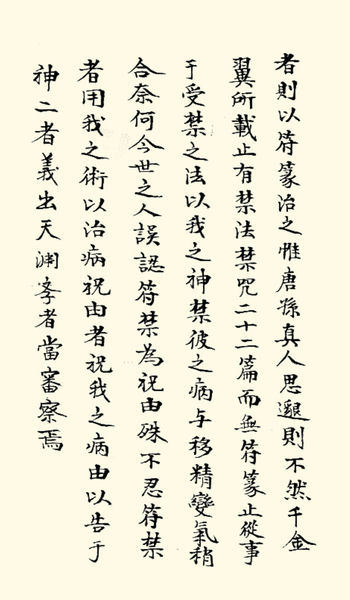 者則以符篆治之惟唐孫真人思邈則不然千金
翼所載止有禁法禁咒二十二篇而無符篆止從事
于受禁之法以我之神禁彼之病与移精變氣稍
合奈何今世之人誤認符禁為祝由殊不忍符禁
者用我之術以治病祝由者祝我之病由以告于
神二者義出天渊孝者當審察焉